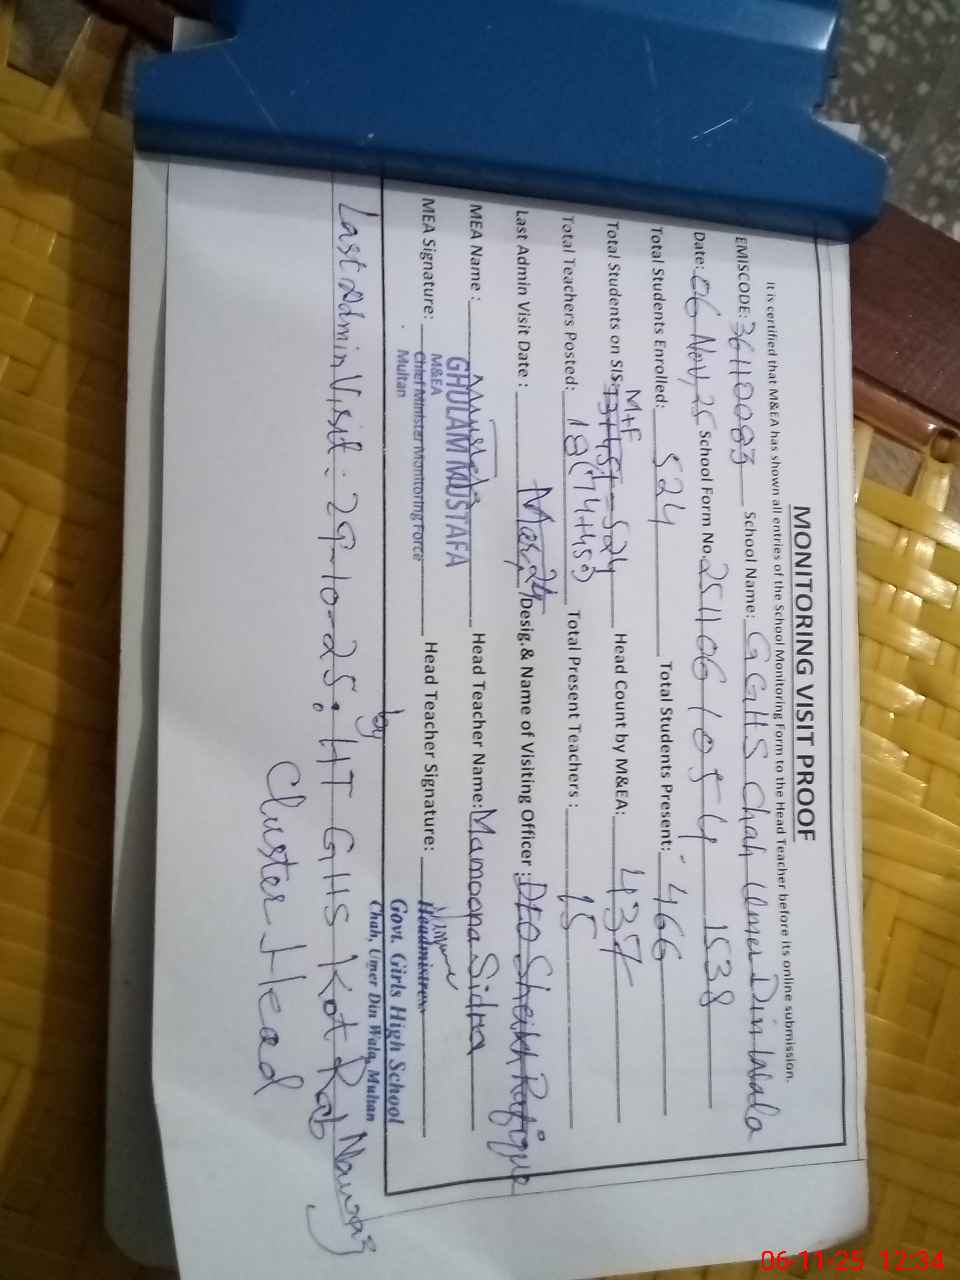 MONITORING VISIT PROOF
It is certified that M&EA has shown all entries of the School Monitoring Form to the Head Teacher before its online submission.
EMISCODE: 36110083 School Name: GGHS Chah Umer Din Wala
Date: 06 Nov, 25 School Form No. 251106 / 054 1538
Total Students Enrolled: 524 Total Students Present: 466
M+F
Total Students on SIS: 524 Head Count by M&EA: 437
Total Teachers Posted: 18 Total Present Teachers : 15
Last Admin Visit Date : Mar, 24 /Desig.& Name of Visiting Officer : DEO Sheikh Rafique
MEA Name : Mustafa Head Teacher Name: Mamoona Sidra
GHULAM MUSTAFA
M&EA
MEA Signature: Chief Minister Monitoring Force Head Teacher Signature: Headmistress
Multan
Govt. Girls High School
Chah, Umer Din Wala, Multan
Last Admin Visit : 29-10-25 : HT GHS Kot Rab Nawaz
by
Cluster Head
06-11-25 12:34